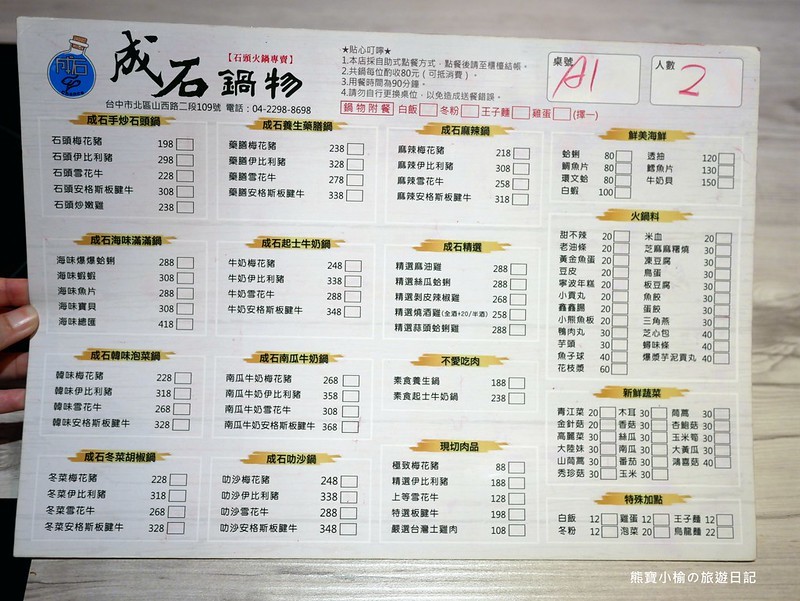 成石
成石鍋物
【石頭火鍋專賣】
台中市北區山西路二段109號 電話：04-2298-8698
★貼心叮嚀★
1.本店採自助式點餐方式，點餐後請至櫃檯結帳。
2.共鍋每位酌收80元（可抵消費）。
3.用餐時間為90分鐘。
4.請勿自行更換桌位，以免造成送餐錯誤。
鍋物附餐 白飯 冬粉 王子麵 雞蛋 (擇一)
桌號 A1
人數 2
成石手炒石頭鍋
石頭梅花豬 198
石頭伊比利豬 298
石頭雪花牛 228
石頭安格斯板腱牛 308
石頭炒嫩雞 238
成石養生藥膳鍋
藥膳梅花豬 238
藥膳伊比利豬 328
藥膳雪花牛 278
藥膳安格斯板腱牛 338
成石麻辣鍋
麻辣梅花豬 218
麻辣伊比利豬 308
麻辣雪花牛 258
麻辣安格斯板腱牛 318
成石海味滿滿鍋
海味爆爆蛤蜊 288
海味蝦蝦 308
海味魚片 288
海味寶貝 308
海味總匯 418
成石起士牛奶鍋
牛奶梅花豬 248
牛奶伊比利豬 338
牛奶雪花牛 288
牛奶安格斯板腱牛 348
成石精選
精選麻油雞 288
精選絲瓜蛤蜊 288
精選剝皮辣椒雞 268
精選燒酒雞(全酒+20/半酒) 258
精選蒜頭蛤蜊雞 288
成石韓味泡菜鍋
韓味梅花豬 228
韓味伊比利豬 318
韓味雪花牛 268
韓味安格斯板腱牛 328
成石南瓜牛奶鍋
南瓜牛奶梅花豬 268
南瓜牛奶伊比利豬 358
南瓜牛奶雪花牛 308
南瓜牛奶安格斯板腱牛 368
不愛吃肉
素食養生鍋 188
素食起士牛奶鍋 238
成石冬菜胡椒鍋
冬菜梅花豬 228
冬菜伊比利豬 318
冬菜雪花牛 268
冬菜安格斯板腱牛 328
成石叻沙鍋
叻沙梅花豬 248
叻沙伊比利豬 338
叻沙雪花牛 288
叻沙安格斯板腱牛 348
現切肉品
極致梅花豬 88
精選伊比利豬 188
上等雪花牛 128
特選板腱牛 198
嚴選台灣土雞肉 108
鮮美海鮮
蛤蜊 80 透抽 120
鯛魚片 80 鱈魚片 130
環文蛤 80 牛奶貝 150
白蝦 100
火鍋料
甜不辣 20 米血 20
老油條 20 芝麻麻糬燒 30
黃金魚蛋 20 凍豆腐 30
豆皮 20 鳥蛋 30
寧波年糕 20 板豆腐 30
小貢丸 20 魚餃 30
鑫鑫腸 20 蛋餃 30
小熊魚板 20 三角燕 30
鴨肉丸 30 芝心包 40
芋頭 30 蟳味條 40
魚子球 40 爆漿芋泥貢丸 40
花枝漿 60
新鮮蔬菜
青江菜 20 木耳 30 茼蒿 30
金針菇 20 香菇 30 杏鮑菇 30
高麗菜 30 絲瓜 30 玉米筍 30
大陸妹 30 南瓜 30 大黃瓜 30
山茼蒿 30 番茄 30 鴻喜菇 40
秀珍菇 30 玉米 30
特殊加點
白飯 12 雞蛋 12 王子麵 12
冬粉 12 泡菜 20 烏龍麵 22
熊寶小榆の旅遊日記